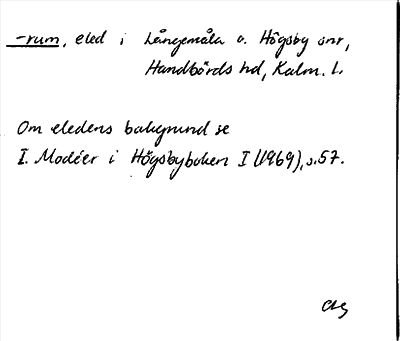 -rum, eled i Långemåla o. Högsby snr,
Handbörds hd, Kalm. l.
Om eledens bakgrund se
I. Modéer i Högsbyboken I (1969), s. 57.